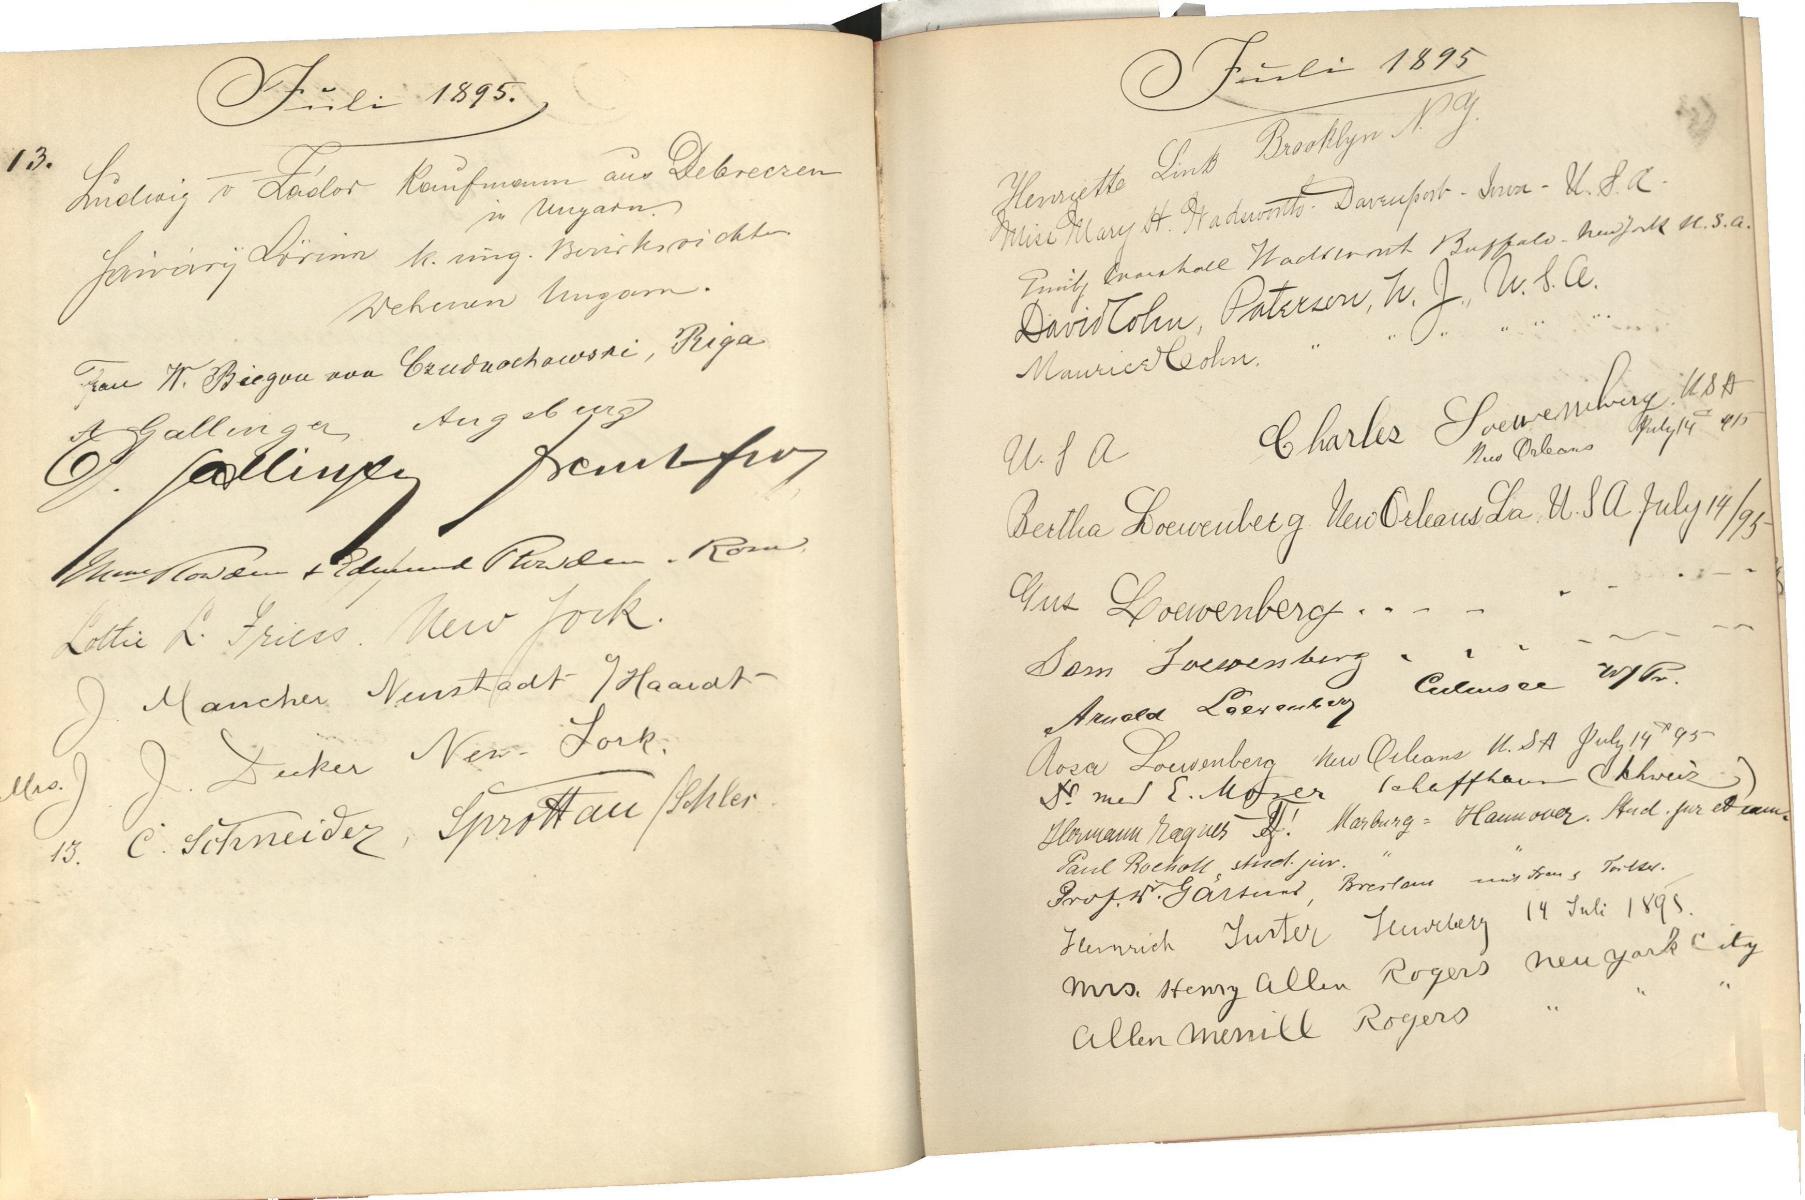 Juli 1895.
13.
Ludwig v Tádor Kaufmann aus Debreczen
in Ungarn.
Lörinn k. ung. Bezirksrichter
Ungarn.
Frau W. Biegon von Czudnochowski, Riga
A Gallinger Augsburg
E. Gallinger Frankfurt
Mme Rowden & Edmund Rowden. Rom.
Lottie L. Friess. New York.
J. Mancher Neustadt a/Haardt
Mrs. J. J. Decker New-York.
13. C. Schneider, Sprottau /Schles.
Juli 1895
Henriette Link Brooklyn N. Y.
Miss Mary H. Wadsworth - Davenport - Iowa - U. S. A -
Emily Marshall Wadsworth Buffalo - New York U. S. A.
David Cohn, Paterson, N. J., U. S. A.
Maurice H Cohn. " " " " " "
Charles Loewenberg. U S A
U. S A New Orleans July 14th 95
Bertha Loewenberg New Orleans La. U. S A July 14/95
Gus Loewenberg
Sam Loewenberg
Arnold Loewenberg Culmsee W/Pr.
Rosa Loewenberg New Orleans U. S A July 14th 95
Dr. med E. Moser Schaffhausen (Schweiz)
Hermann Marburg = Hannover. Stud. jur et cam.
Paul Rocholl, stud. jur. " "
Prof. Dr. Gärtner, Breslau mit Frau & Tochter.
Heinrich 14 Juli 1895.
Mrs. Henry Allen Rogers New York City
Allen Merrill Rogers " " "